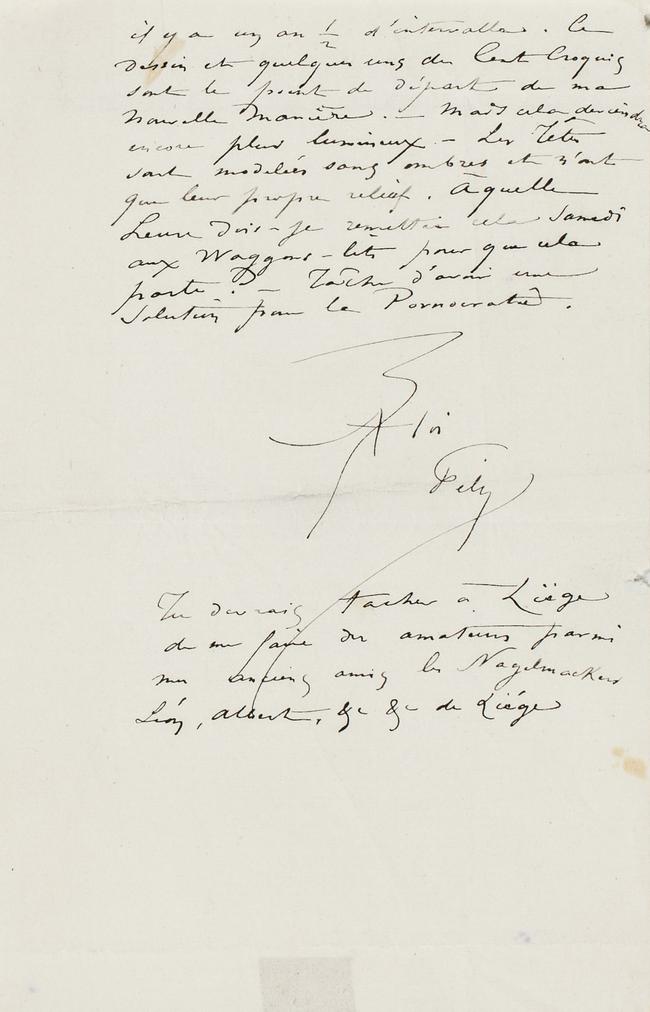 il y a un an 1/2 d'intervalle. Ce
Dessin et quelques uns des Cent Croquis
sont le point de départ de ma
Nouvelle Manière. — Mais cela deviendra
encore plus lumineux — Les Têtes
sont modelées sans ombres et n'ont
que leur propre relief. À quelle
heure dois-je remettre cela Samedi
aux Waggons-lits pour que cela
parte? — Tâche d'avoir une
Solution pour la Pornocratie.
A toi
Fély
Tu devrais tacher à Liège
de me faire des amateurs parmi
mes anciens amis les Nagelmackers
Léon, Albert, &c &c de Liége